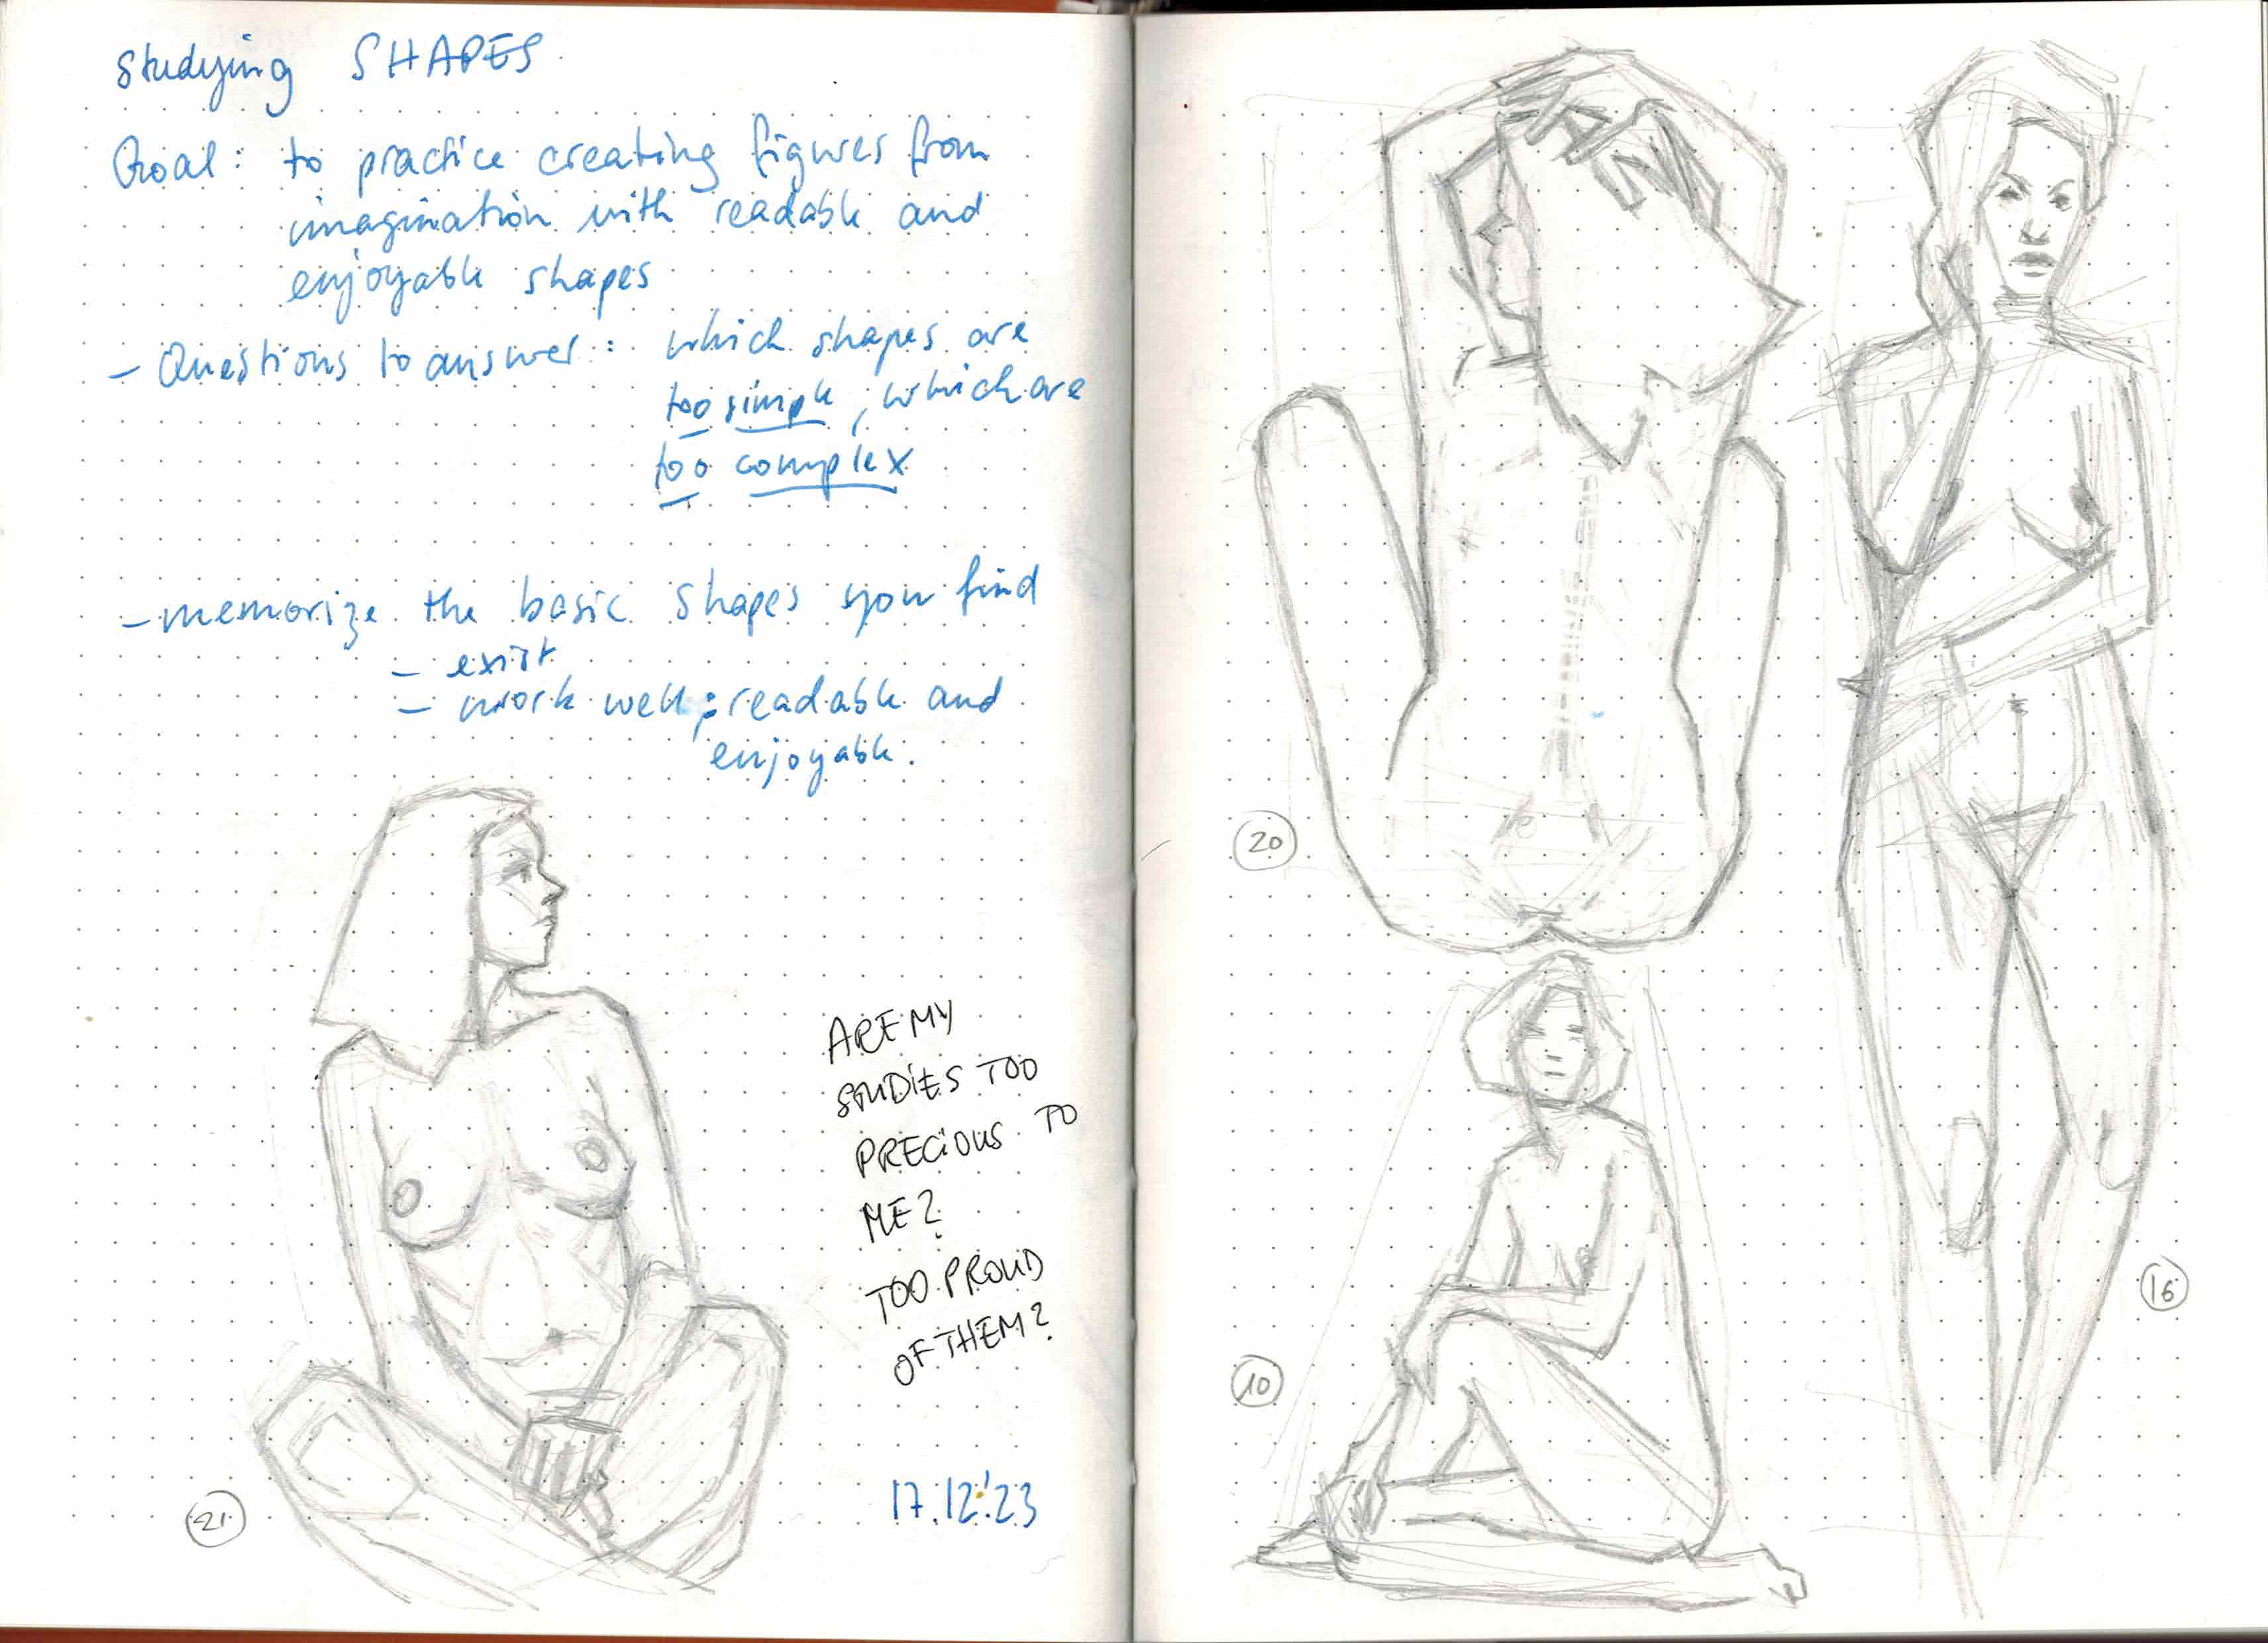 Studying SHAPES
Goal: to practice creating figures from
imagination with readable and
enjoyable shapes
- Questions to answer: which shapes are
too simple, which are
too complex
- memorize the basic shapes you find
- exist
- work well; readable and
enjoyable.
ARE MY
STUDIES TOO
PRECIOUS TO
ME?
TOO PROUD
OF THEM?
21
17.12.'23
20
16
10